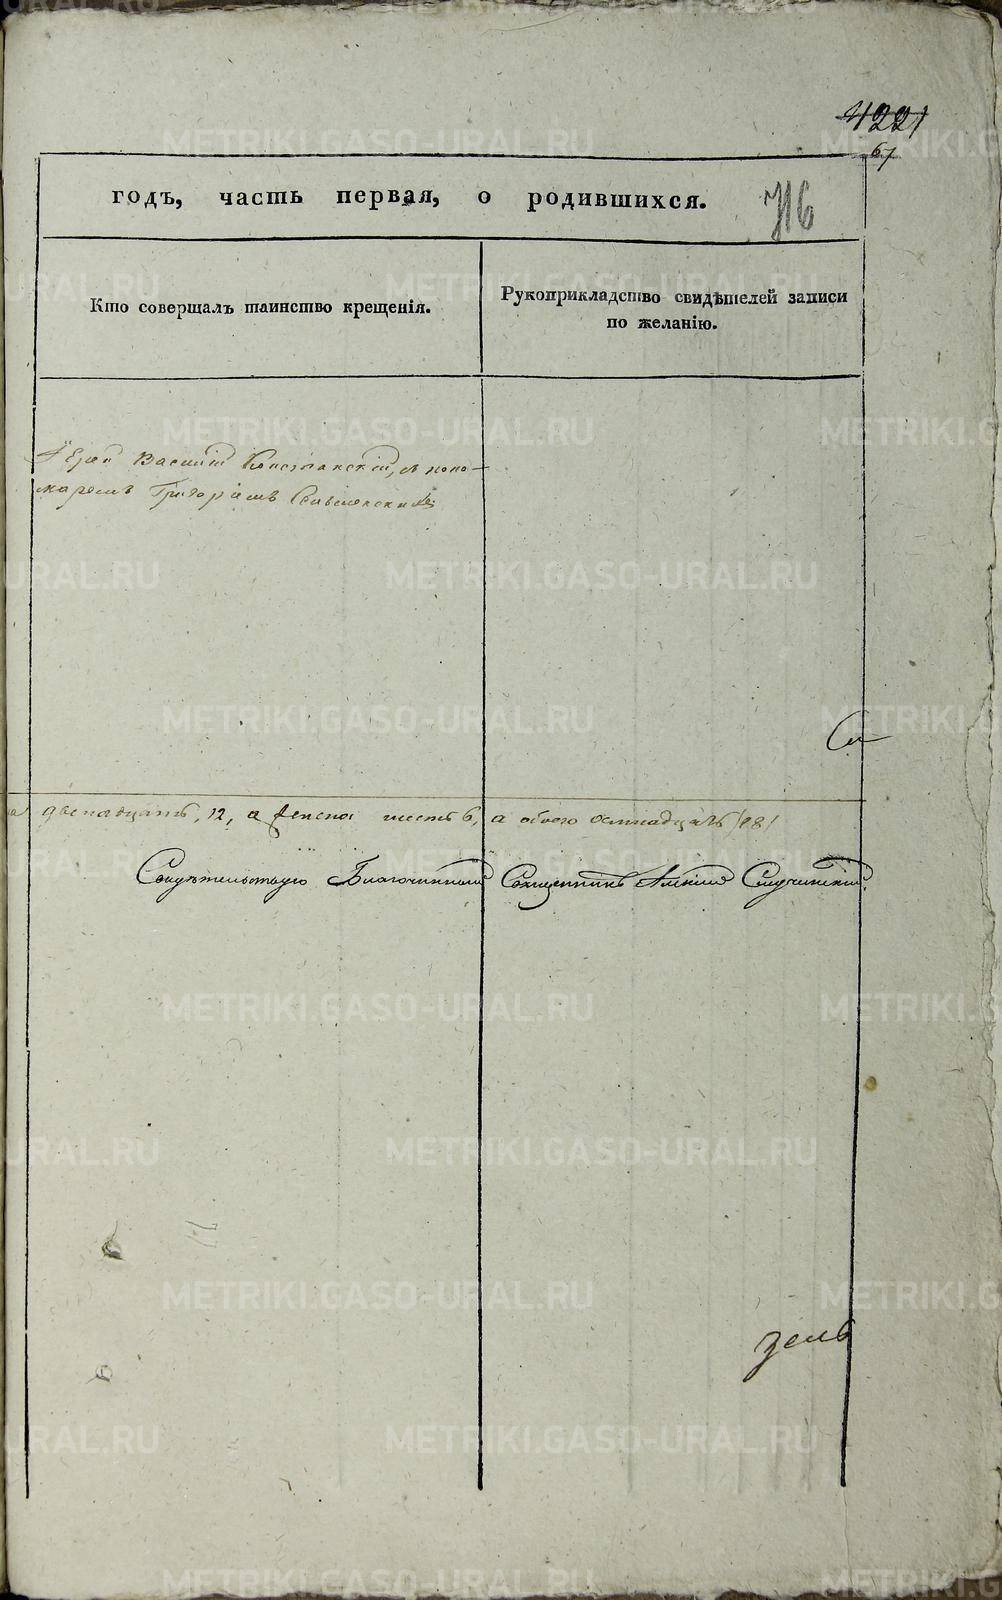 4221
67
годъ, часть первая, о родившихся.
716
Кто совершалъ таинство крещенія.
Рукоприкладство свидѣтелей записи
по желанію.
Іерей Василій съ поно-
маремъ Григоріемъ
двенадцать, 12, а женска шесть 6, а обоего осмнадцать /18/
Свидѣтельствую Благочинный Священникъ
METRIKI.GASO-URAL.RU